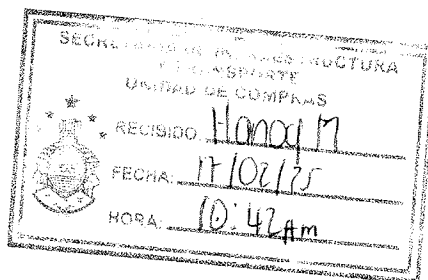 SECRETARIA DE INFRAESTRUCTURA
Y TRANSPORTE
UNIDAD DE COMPRAS
RECIBIDO: Hanog M
FECHA: 17/02/25
HORA: 10:42 Am